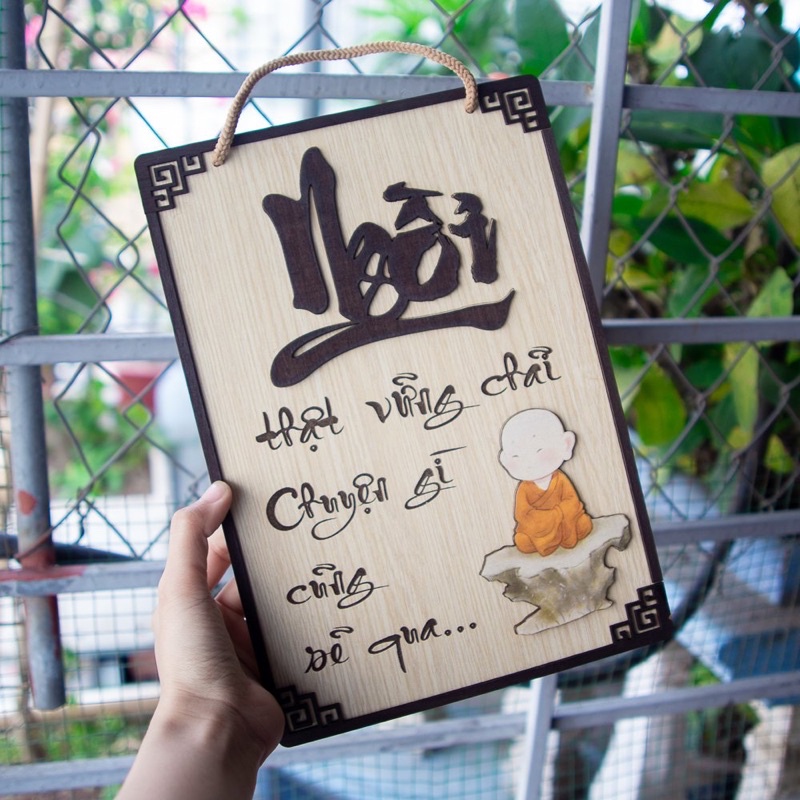 Ngồi
thật vững chãi
Chuyện gì
cũng
sẽ qua...